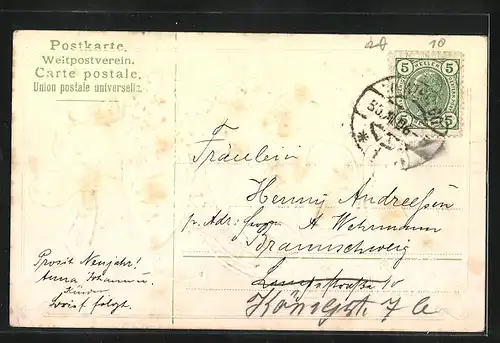 Postkarte.
Weltpostverein.
Carte postale.
Union postale universelle.
20 10
5 HELLER 5
5 5
Fräulein
Henny Andreessen
p. Adr: A Wehrmann
Braunschweig
straße 10
Königst. 7 b
Prosit Neujahr!
Anna, Johann u.
Brief folgt.